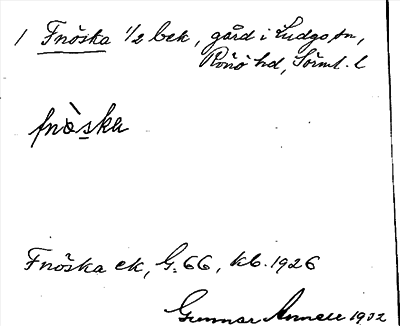 1 Fnöska 1/2 bck, gård i Ludgo sn,
Rönö hd, Sörml. l
fnö̀ska
Fnöska ek, G. 66, kb. 1926
Gunnar 1932